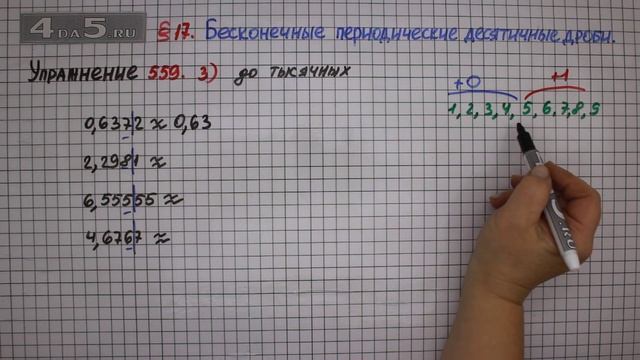 4DA5.RU
§17. Бесконечные периодические десятичные дроби.
Упражнение 559. 3) до тысячных
+0 +1
1, 2, 3, 4, 5, 6, 7, 8, 9
0,6372 ≈ 0,63
2,2981 ≈
6,55555 ≈
4,6767 ≈